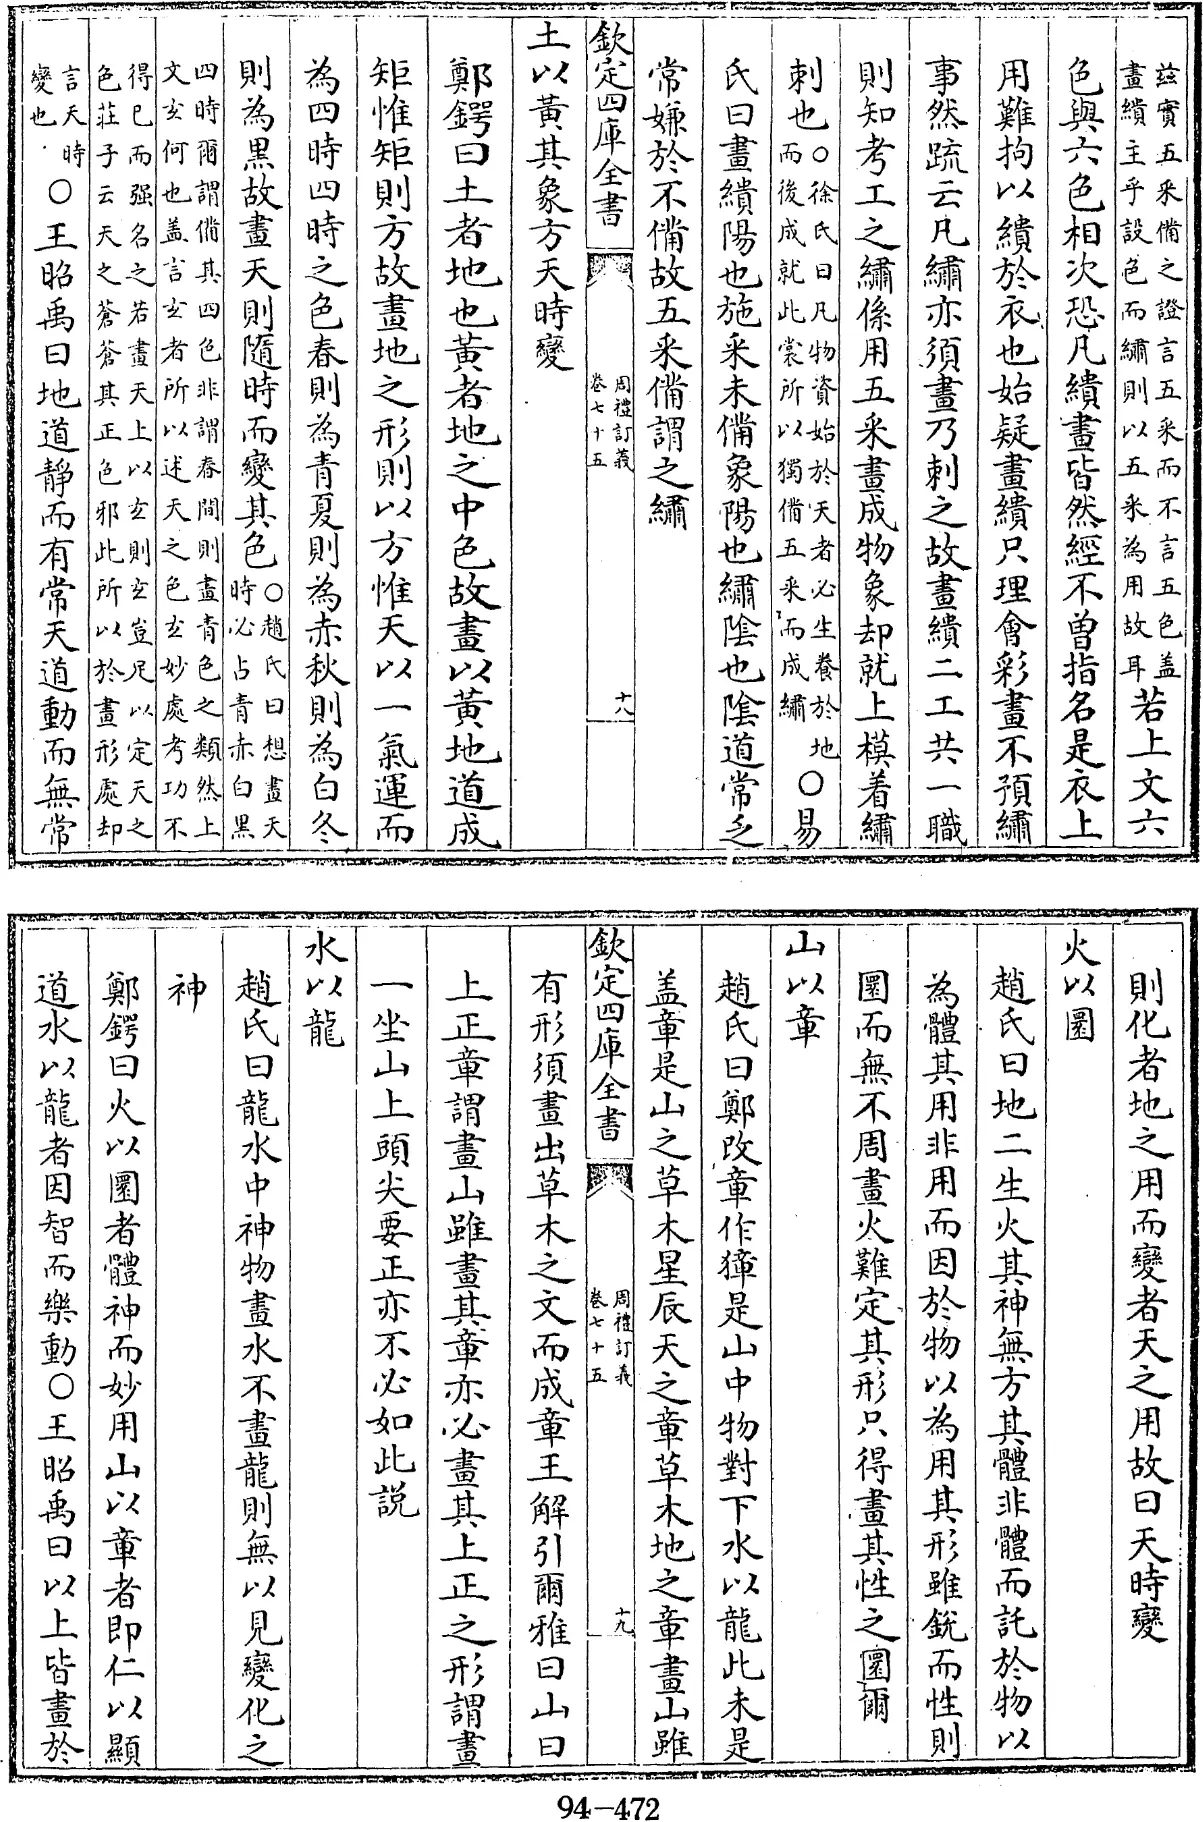 茲實五采備之證言五采而不言五色盖
畫繢主乎設色而繡則以五采為用故耳
若上文六
色與六色相次恐凡繢畫皆然經不曽指名是衣上
用難拘以繢於衣也始疑畫繢只理會彩畫不預繡
事然疏云凡繡亦須畫乃刺之故畫繢二工共一職
則知考工之繡係用五采畫成物象却就上模着繡
刺也
○徐氏曰凡物資始於天者必生養於地
而後成就此裳所以獨備五采而成繡
○易
氏曰畫繢陽也施采未備象陽也繡陰也陰道常乏
常嫌於不備故五采備謂之繡
欽定四庫全書
周禮訂義
卷七十五
十八
土以黃其象方天時變
鄭鍔曰土者地也黃者地之中色故畫以黃地道成
矩惟矩則方故畫地之形則以方惟天以一氣運而
為四時四時之色春則為青夏則為赤秋則為白冬
則為黒故畫天則隨時而變其色
○趙氏曰想畫天
時必占青赤白黑
四時爾謂備其四色非謂春間則畫青色之類然上
文玄何也盖言玄者所以述天之色玄妙處考功不
得已而强名之若畫天上以玄則玄豈足以定天之
色莊子云天之蒼蒼其正色邪此所以於畫形處却
言天時
變也
○王昭禹曰地道靜而有常天道動而無常
則化者地之用而變者天之用故曰天時變
火以圜
趙氏曰地二生火其神無方其體非體而託於物以
為體其用非用而因於物以為用其形雖銳而性則
圜而無不周畫火難定其形只得畫其性之圜爾
山以章
趙氏曰鄭改章作獐是山中物對下水以龍此未是
盖章是山之草木星辰天之章草木地之章畫山雖
欽定四庫全書
周禮訂義
卷七十五
十九
有形須畫出草木之文而成章王解引爾雅曰山曰
上正章謂畫山雖畫其章亦必畫其上正之形謂畫
一坐山上頭尖要正亦不必如此説
水以龍
趙氏曰龍水中神物畫水不畫龍則無以見變化之
神
鄭鍔曰火以圜者體神而妙用山以章者即仁以顯
道水以龍者因智而樂動○王昭禹曰以上皆畫於
94-472